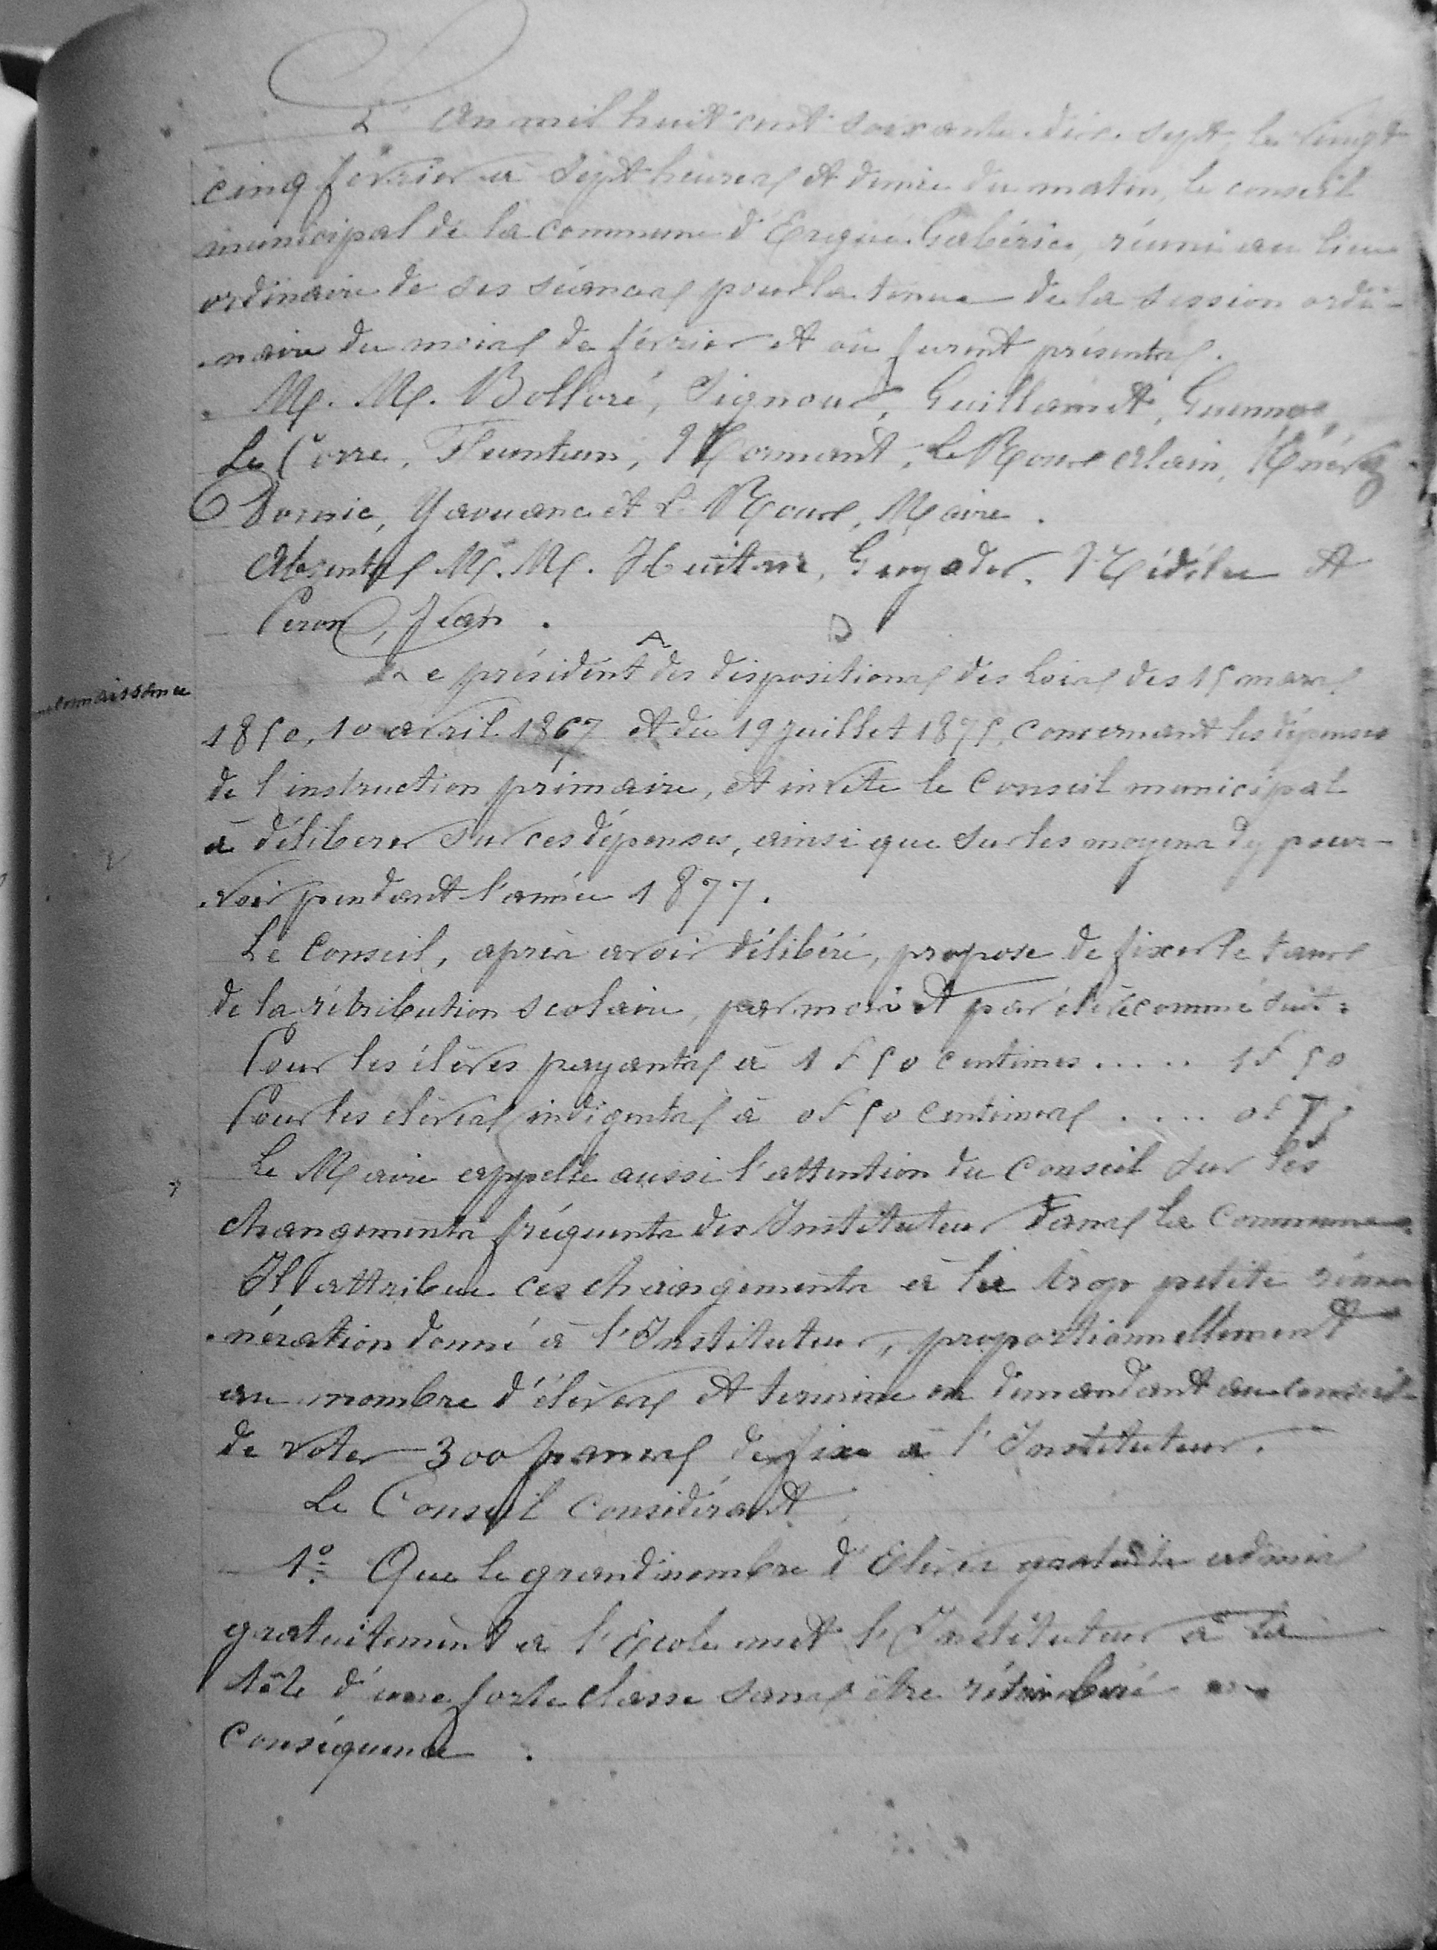 L'an mil huit cent soixante dix sept, le vingt
cinq février à sept heures et demie du matin, le conseil
municipal de la commune d'Ergué-Gabéric, réuni au lieu
ordinaire de ses séances pour la tenue de la session ordi-
-naire du mois de février et où furent présents.
M. M. Bolloré, Signour, Guillamet, Guennec,
Le Corre, Feunteun, Normant, Le Roux Alain,
Dornic, Yaouanc et Le Roux, Maire.
Absents M. M. Huitric, Guyader, Nédélec et
Peron, Jean.
A
connaissance
Le président des dispositions des lois des 15 mars
1850, 10 avril 1867 et du 19 juillet 1875, concernant les dépenses
de l'instruction primaire, et invite le Conseil municipal
à déliberer sur ces dépenses, ainsi que sur les moyens d'y pour-
-voir pendant l'année 1877.
Le Conseil, après avoir délibéré, propose de fixer le taux
de la rétribution scolaire, par mois et par élève comme suit:
Pour les élèves payants à 1 f 50 centimes ..... 1 f 50
Pour les élèves indigents à 0 f 50 centimes ..... 0 f 75
Le Maire appelle aussi l'attention du Conseil sur les
changements fréquents des Instituteur dans la Commune.
Il attribue ces changements à la trop petite rému
-nération donné à l'Instituteur, proportionnellement
au nombre d'élèves et termine en demandant au conseil
de voter 300 francs de fixe à l'Instituteur.
Le Conseil considérant
1º Que le grand nombre d'Elèves gratuits admis
gratuitement à l'école met l'Instituteur à la
tête d'une forte classe sans être rétribué en
conséquence.